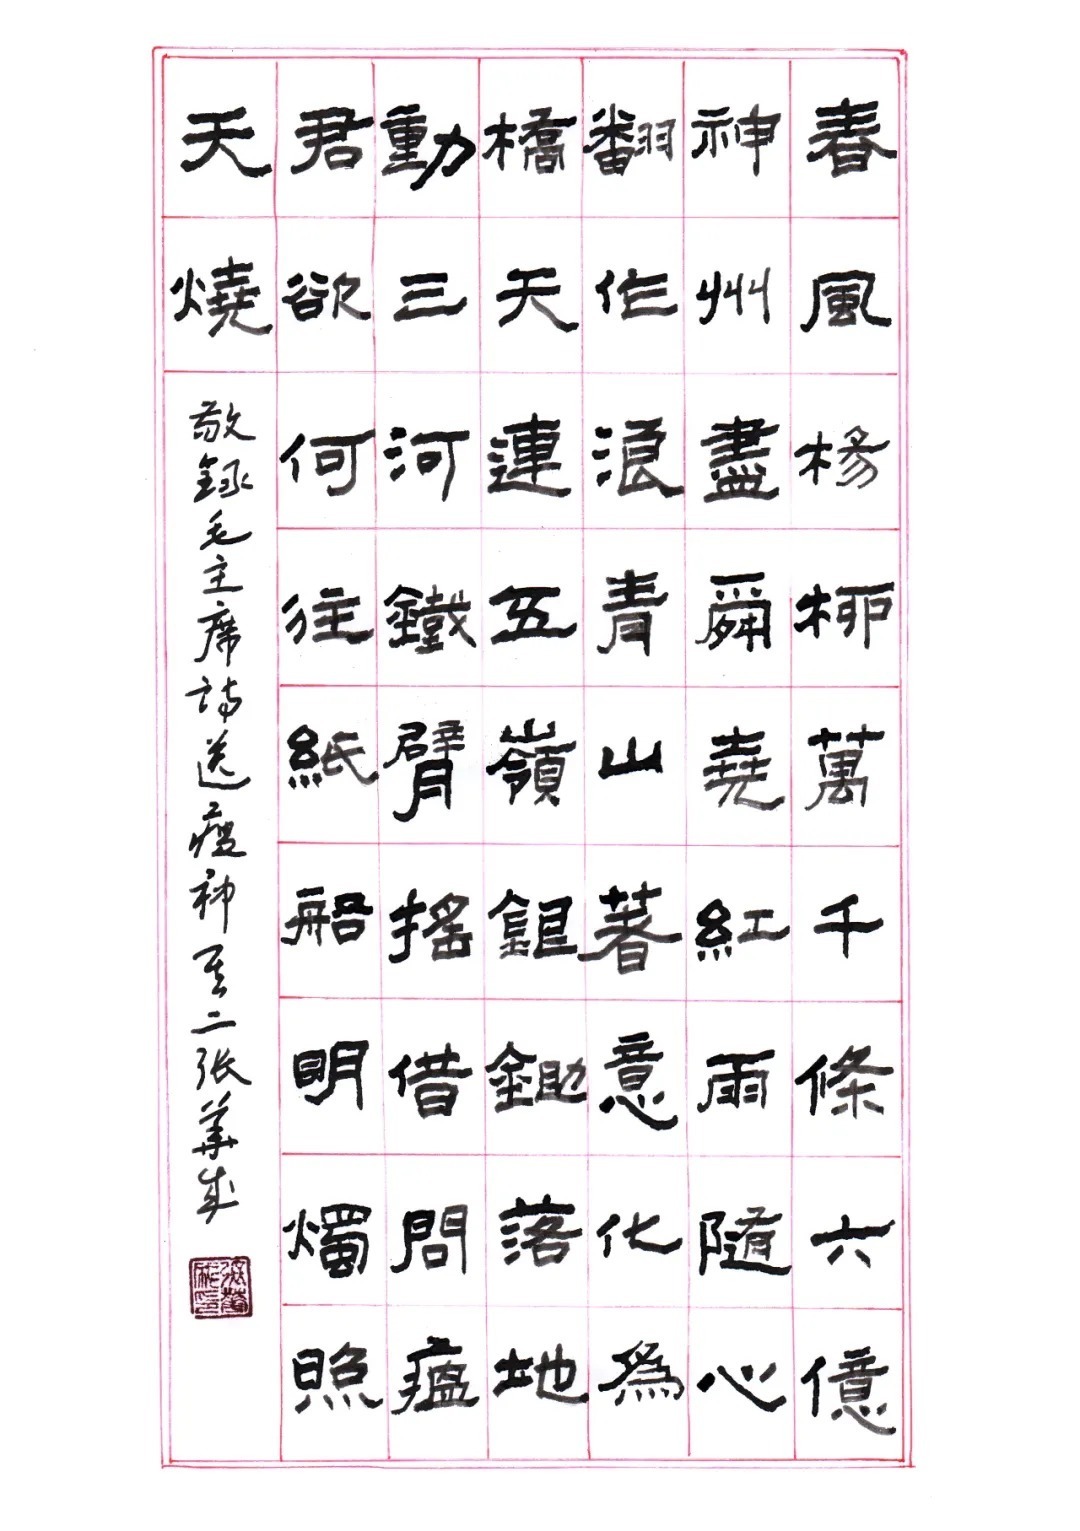 春風楊柳萬千條六億
神州盡舜堯紅雨隨心
翻作浪青山著意化爲
橋天連五嶺銀鋤落地
動三河鐵臂搖借問瘟
君欲何往紙船明燭照
天燒
敬録毛主席詩送瘟神其二张華成